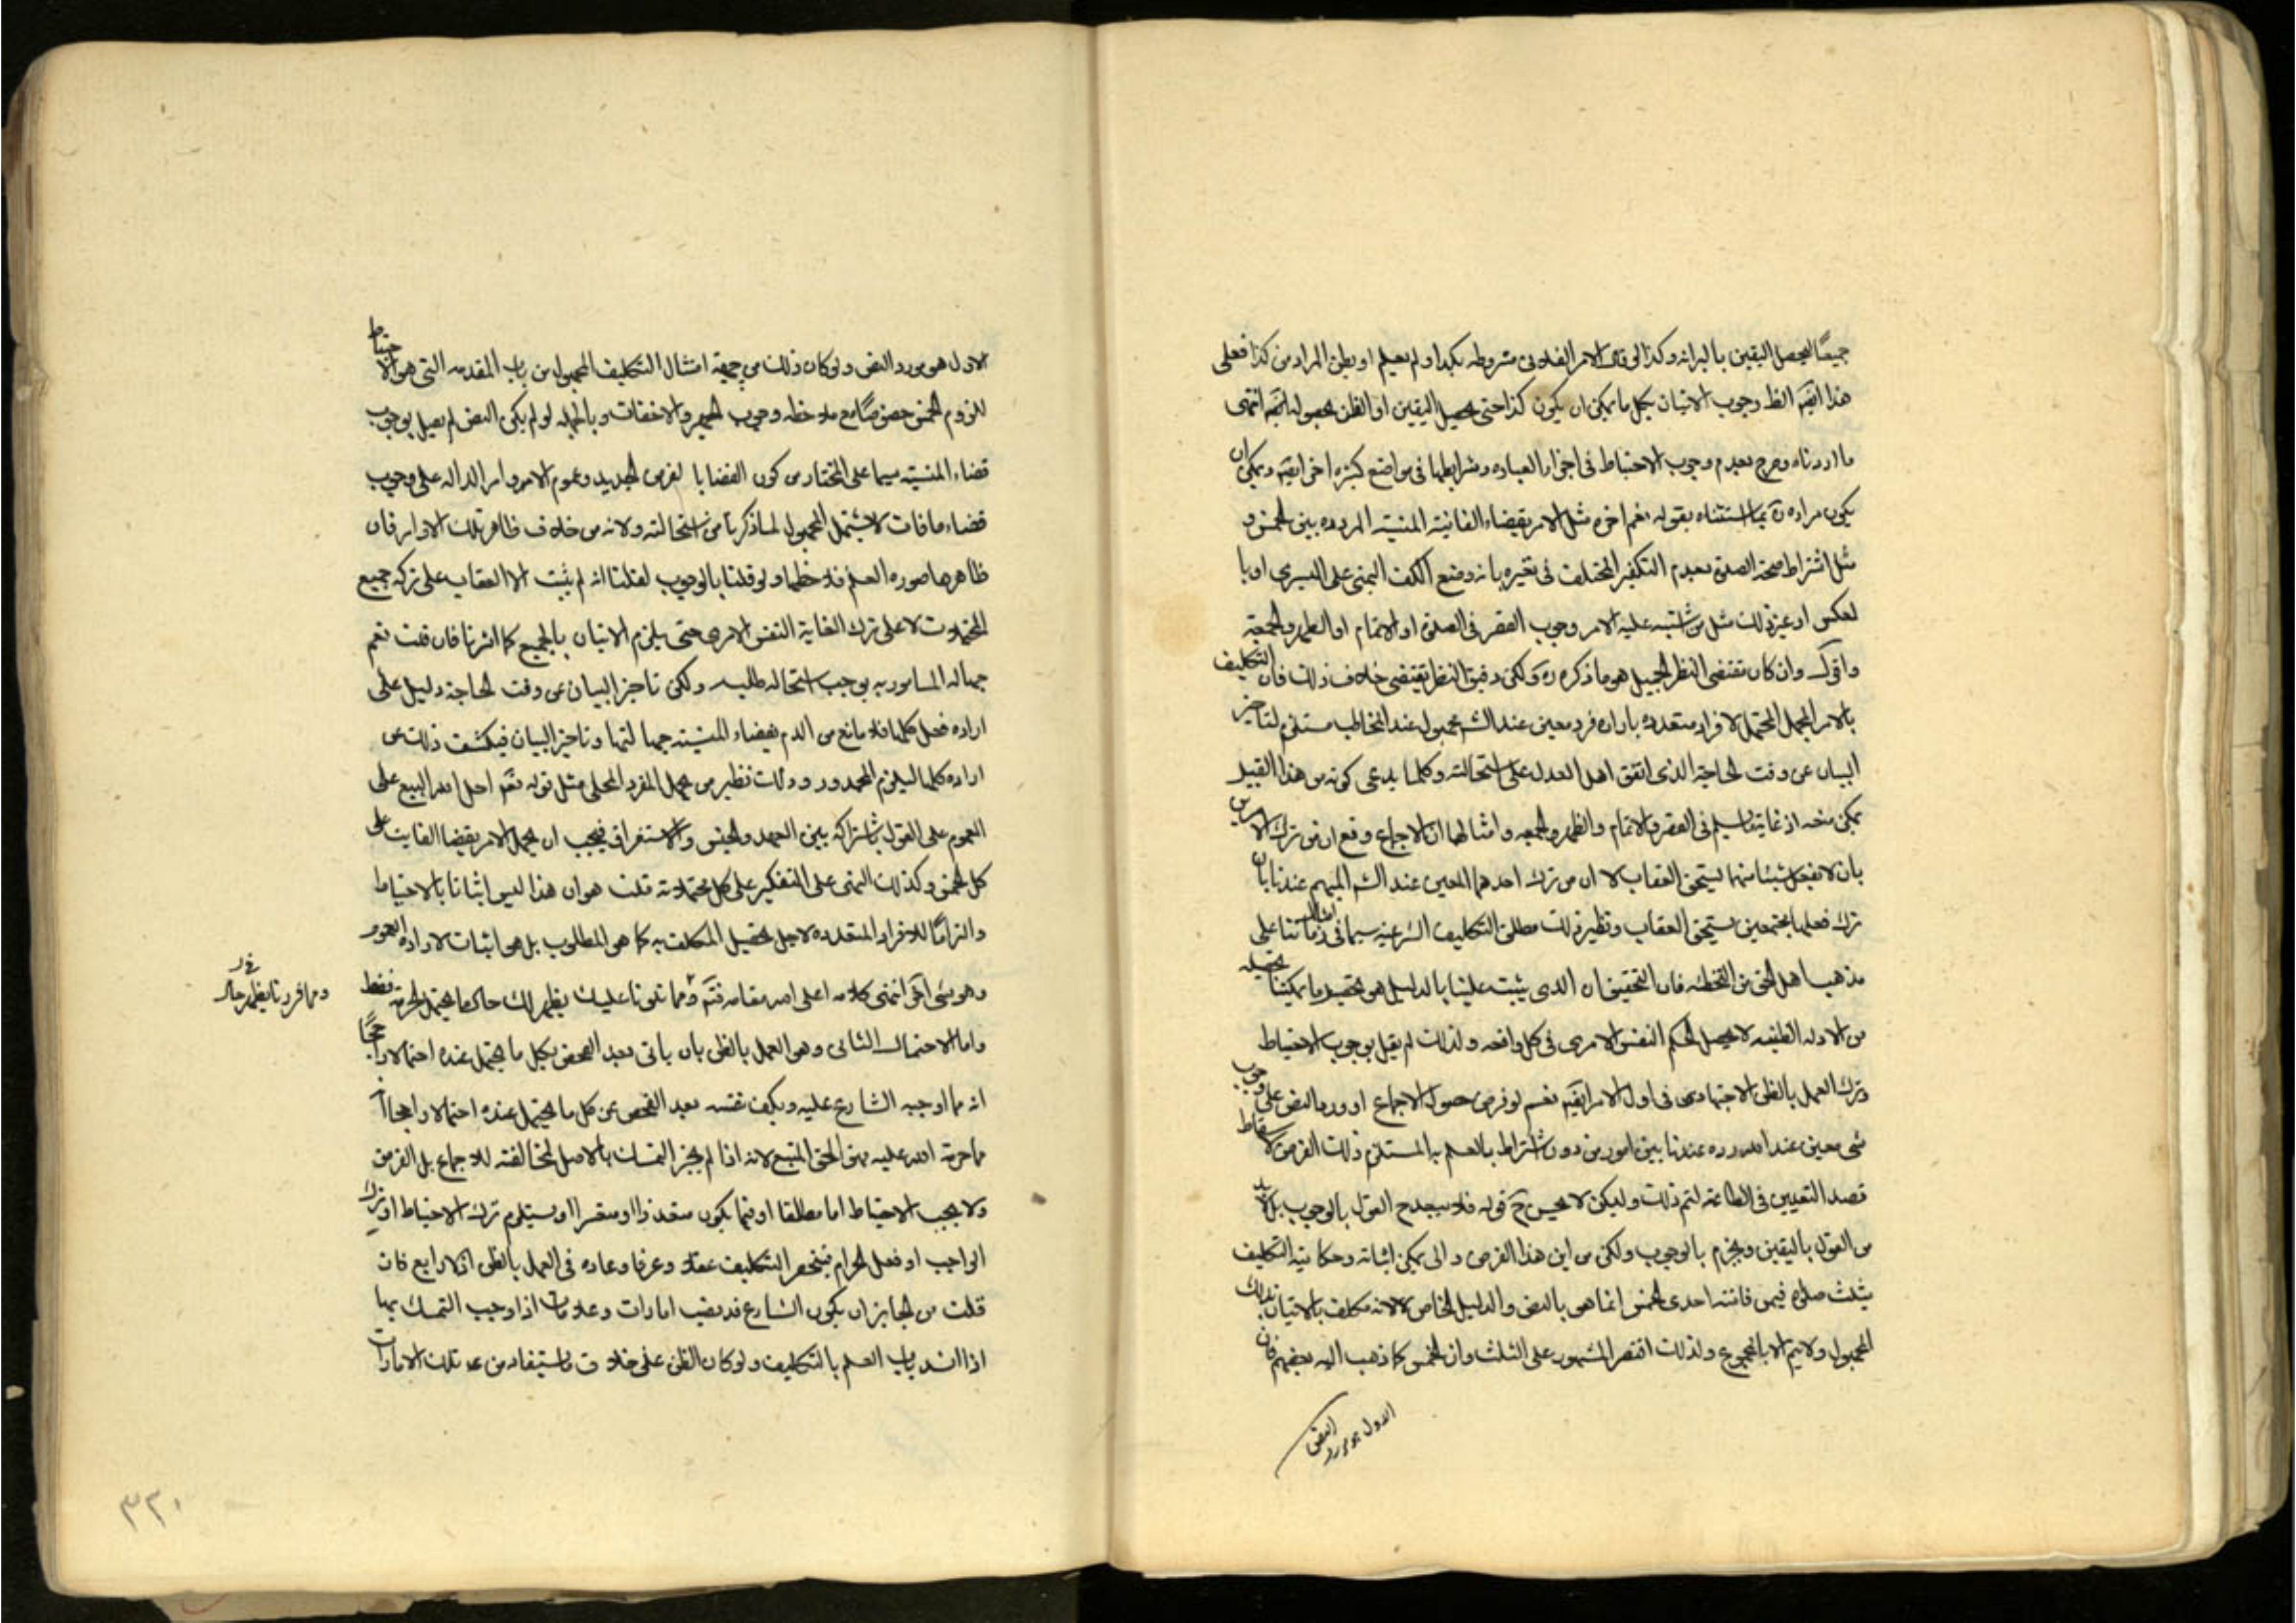 جميعًا ليحصل اليقين بالبرائه وكذا لو قال الامر الفلانى مشروطه بكذا ولم يعلم او يظن المراد من كذا فعلى
هذا ايضًا الظ وجوب الاتيان بكل ما يمكن ان يكون كذا حتى يحصل اليقين او الظن بحصوله ايضا انتهى
ما اردناه وصرح بعدم وجوب الاحتياط فى اجزاء العباده وشرايطها فى مواضع كثيره اخر ايضا ويمكن ان
يكون مراده ره بما استثناه بقوله نعم اخره مثل الامر بقضاء الفائتة المنسية المردده بين الخمس و
مثل اشتراط صحة الصلوة بعدم التكفير المختلف فى تفسيره بانه وضع الكف اليمنى على اليسرى او با
لعكس او غير ذلك مثل من يشتبه عليه الامر وجوب القصر فى الصلوة او الاتمام او الظهر والجمعة
واقول وان كان مقتضى النظر الجليل هو ما ذكره ره ولكن دقيق النظر يقتضى خلاف ذلك فان التكليف
بالامر المجمل المحتمل لافراد متعدده باراده فرد معين عند الش مجهول عند المخاطب مستلزم لتاخير
البيان عن وقت الحاجة الذى اتفق اهل العدل على استحالته وكلما يدعى كونه من هذا القبيل
يمكن منعه اذ غاية ما يسلم فى القصر والاتمام والظهر والجمعه وامثالها ان الاجماع وقع ان من ترك الامرين
بان لا يفعل شيئا منهما يستحق العقاب لا ان من ترك احدهما المعين عند الش المبهم عندنا بان
ترك فعلهما مجتمعين يستحق العقاب ونظير ذلك مطلق التكاليف الشرعيه سيما فى امثال زماننا على
مذهب اهل الحق من التخطئه فان التحقيق ان الذى يثبت علينا بالدليل هو تحصيل ما يمكننا تحصيله
من الادله الظنيه لا تحصيل الحكم النفس الامرى فى كل واقعه ولذلك لم نقل بوجوب الاحتياط
وترك العمل بالظن الاجتهادى فى اول الامر ايضا نعم لو فرض حصول الاجماع او ورد النص على وجوب
شى معين عند الله مردد عندنا بين امور من دون اشتراط بالعلم به المستلزم ذلك الفرض لاسقاط
قصد التعيين فى الطاعة لتم ذلك ولكن لا يحسن ح قوله فلا يبعد ح القول بالوجوب بل لابد
من القول باليقين ويجزم بالوجوب ولكن من اين هذا الفرض وانى يمكن اثباته وحكاية التكليف
بثلث صلوة فيمن فاتته احدى الخمس انما هى بالنص والدليل الخاص لا لانه مكلف بالاتيان بذلك
المجهول ولا يتم الا بالمجموع ولذلك اقتصر المشهور على الثلث وان الخمس كما ذهب اليه بعضهم فان
الاول هو مورد النص
الاول هو مورد النص ولو كان ذلك من جهة امتثال التكليف المجهول من باب المقدمه التى هو الاحتياط
للزوم الخمس خصوصًا مع ملاحظه وجوب الجهر والاخفات وبالجمله لو لم يكن النص لم نقل بوجوب
قضاء المنسية سيما على المختار من كون القضايا لفرض الجديد وعموم الاوامر الداله على وجوب
قضاء ما فات لا يشتمل المجهول لما ذكرنا من استحالته ولانه من خلاف ظاهر تلك الاوامر فان
ظاهرها صوره العلم فلاحظها ولو قلنا بالوجوب لقلنا انه لم يثبت الا العقاب على تركه جميع
المحتملات لا على ترك الفاية النفس الامرى حتى يلزم الاتيان بالجميع كما اشرنا فان قلت نعم
جهاله المامور به يوجب استحاله طلبه ولكن تاخير البيان عن وقت الحاجة دليل على
اراده فعل كلها فلا مانع من الدم بقضاء المنسية جهالتها وتاخير البيان فيكشف ذلك عن
اراده كلها ليلزم المحذور وذلك نظير من حمل المفرد المحلى مثل قوله تعم احل الله البيع على
العموم على القول باشتراكه بين العهد والجنس والاستغراق فيجب ان يحمل الامر بقضا الفايت على
كل الخمس وكذلك النهى على التكفير على كل محتملاته قلت هوان هذا ليس اثباتا بالاحتياط
والتزامًا للافراد المتعدده لاجل تحصيل المكلف به كما هو المطلوب بل هو اثبات لاراده العموم
وهو شى اخر انتهى كلامه اعلى الله مقامه فتم ومما تلونا عليك يظهر لك حال ما يحتمل الحرمة فقط
ومما قررنا يظهر حال
واما الاحتمال الثانى وهو العمل بالظن بان ياتى بعد الفحص بكل ما يحتمل عنده احتمالا راجحًا
انه مما اوجبه الشارع عليه ويكف نفسه بعد التفحص عن كل ما يحتمل عنده احتمالا راجحا انه
مما حرمه الله عليه فهو الحق المتبع لانه اذا لم يجز التمسك بالاصل لمخالفته للاجماع بل الفرض
ولا يجب الاحتياط اما مطلقا او فيما يكون متعذرا او متعسرا او يستلزم ترك الاحتياط او ترك
الواجب او فعل الحرام فينحصر التكليف عقلا وعرفا وعاده فى العمل بالظن اذ لا رابع فان
قلت من الجايز ان يكون الشارع قد نصب امارات وعلامات اذا وجب التمسك بها
اذا انسد باب العلم بالتكليف ولو كان الظن على خلاف ما يستفاد من تلك الامارات
٣٢١